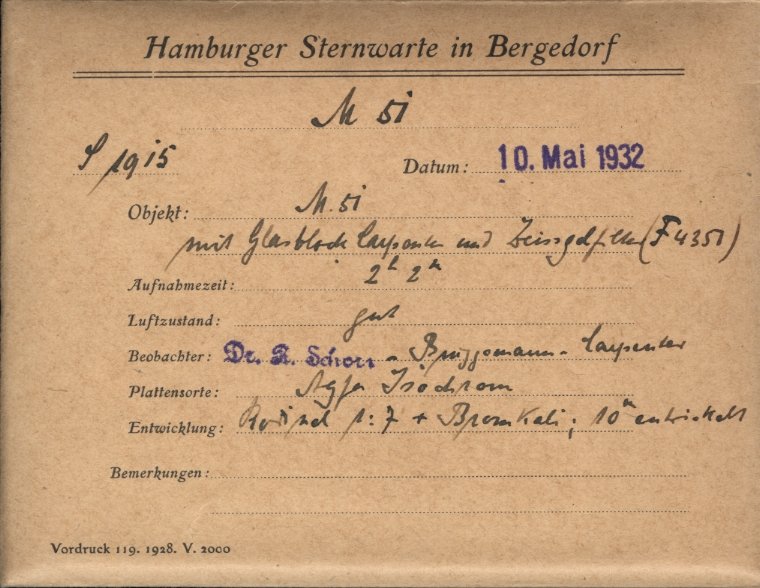 Hamburger Sternwarte in Bergedorf
M 51
S 1915
Datum: 10. Mai 1932
Objekt: M. 51
mit Glasblock Carpenter und Zeissgelbfilter (F 4351)
Aufnahmezeit: 2h 2m
Luftzustand: gut
Beobachter: Dr. R. Schorr - Brüggemann - Carpenter
Plattensorte: Agfa Isochrom
Entwicklung: 1:7 + Bromkali; 10m entwickelt
Bemerkungen:
Vordruck 119. 1928. V. 2000